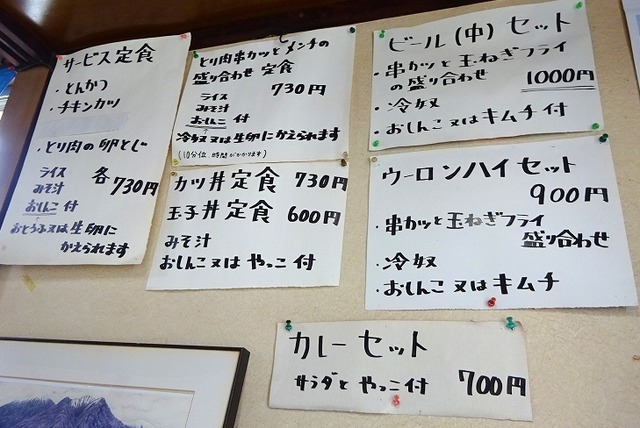 サービス定食
・とんかつ
・チキンカツ
・とり肉の卵とじ
ライス
みそ汁
おしんこ付
各730円
おとうふ又は生卵に
かえられます
とり肉串カツとメンチの
盛り合わせ 定食
730円
ライス
みそ汁
おしんこ 付
冷奴又は生卵にかえられます
(10分位、時間がかかります)
カツ丼定食 730円
玉子丼定食 600円
みそ汁
おしんこ 又は やっこ 付
ビール(中) セット
・串カツと玉ねぎフライ
の盛り合わせ
1000円
・冷奴
・おしんこ又はキムチ付
ウーロンハイセット
900円
・串カツと玉ねぎフライ
盛り合わせ
・冷奴
・おしんこ又はキムチ
カレーセット
サラダとやっこ付 700円